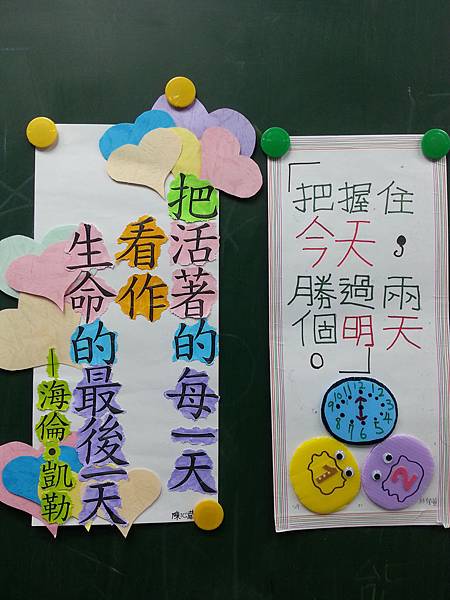 把活著的每一天
看作
生命的最後一天
—海倫·凱勒
「把握住
今天，
勝過兩
個明天。」
12 1 2 3 4 5 6 7 8 9 10 11
1
2